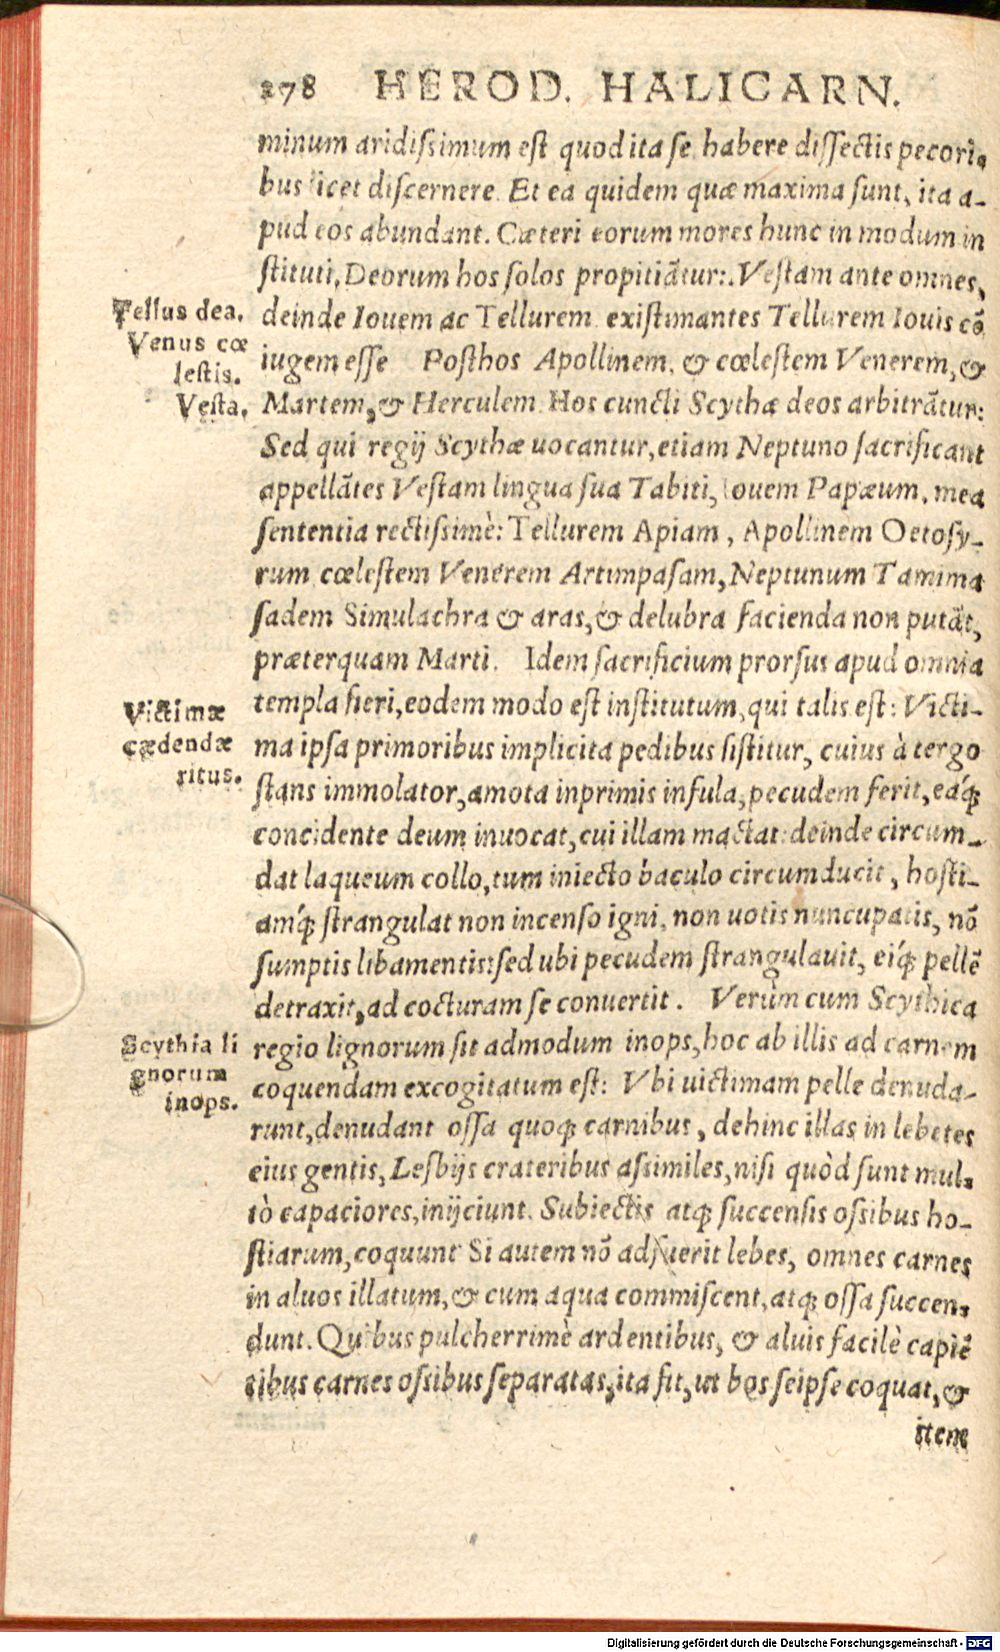 278 HEROD. HALICARN.
minum aridiſsimum est quod ita ſe habere diſſectis pecori-
bus licet diſcernere. Et ea quidem quæ maxima ſunt, ita a-
pud eos abundant. Cæteri eorum mores hunc in modum in
ſtituti. Deorum hos ſolos propitiātur: Veſtam ante omnes,
Tellus dea.
deinde Iouem ac Tellurem existimantes Tellurem Iouis cō
Venus cœ
lestis.
iugem eſſe Poſthos Apollinem, & cœleſtem Venerem, &
Vesta.
Martem, & Herculem. Hos cuncti Scythæ deos arbitrātur:
Sed qui regij Scythæ uocantur, etiam Neptuno ſacrificant
appellātes Veſtam lingua ſua Tabiti, Iouem Papæum, mea
ſententia rectiſsimè: Tellurem Apiam, Apollinem Oetoſy-
rum cœleſtem Venerem Artimpaſam, Neptunum Tamima
ſadem Simulachra & aras, & delubra facienda non putāt,
præterquam Marti. Idem ſacrificium prorſus apud omnia
Victimæ
cædendæ
ritus.
templa fieri, eodem modo est inſtitutum, qui talis est: Victi-
ma ipſa primoribus implicita pedibus ſiſtitur, cuius à tergo
ſtans immolator, amota inprimis infula, pecudem ferit, eáq;
concidente deum inuocat, cui illam mactat: deinde circum-
dat laqueum collo, tum iniecto baculo circumducit, hoſti-
amq́; ſtrangulat non incenſo igni, non uotis nuncupatis, nō
ſumptis libamentis: ſed ubi pecudem ſtrangulauit, eiq́; pellē
detraxit, ad cocturam ſe conuertit. Verùm cum Scythica
Scythia li
gnorum
inops.
regio lignorum ſit admodum inops, hoc ab illis ad carnem
coquendam excogitatum est: Vbi uictimam pelle denuda-
runt, denudant oſſa quoq; carnibus, dehinc illas in lebetes
eius gentis, Lesbijs crateribus aſsimiles, niſi quòd ſunt mul-
tò capaciores, inijciunt. Subiectis atq; ſuccenſis oſsibus ho-
ſtiarum, coquunt Si autem nō adfuerit lebes, omnes carnes
in aluos illatum, & cum aqua commiſcent, atq; oſſa ſuccen-
dunt. Quibus pulcherrimè ardentibus, & aluis facilè capiē
tibus carnes oſsibus ſeparatas, ita fit, ut bos ſeipſe coquat, &
item
Digitalisierung gefördert durch die Deutsche Forschungsgemeinschaft - DFG